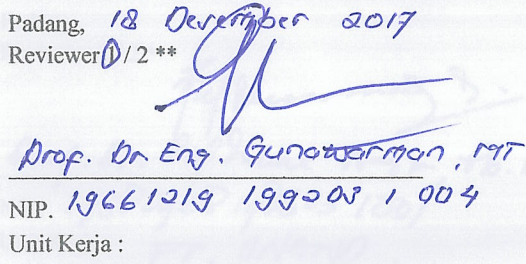 Padang, 18 Desember 2017
Reviewer 1 / 2 **
Prof. Dr. Eng. Gunawarman, MT
NIP. 19661219 199203 1 004
Unit Kerja :